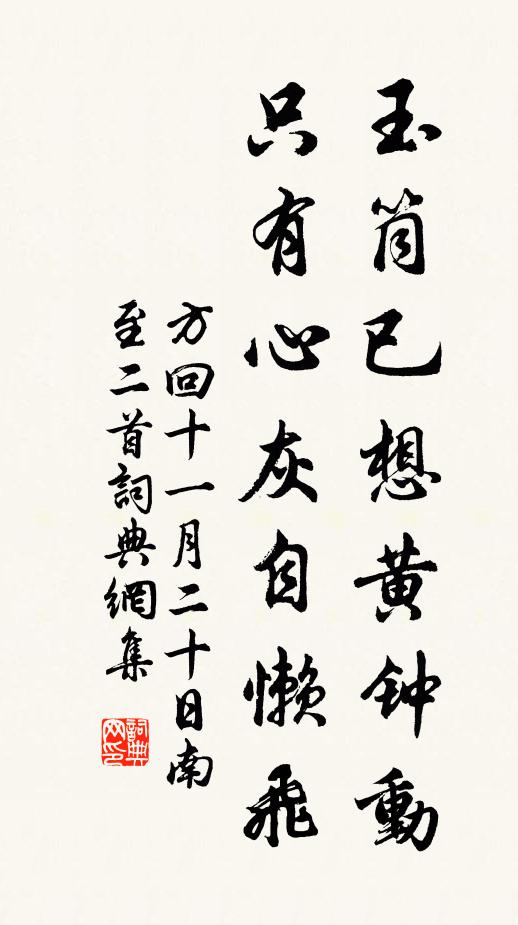 玉筒已想黄钟動
只有心灰自懒飛
方回十一月二十日南
至二首詞典網集
詞典
网印